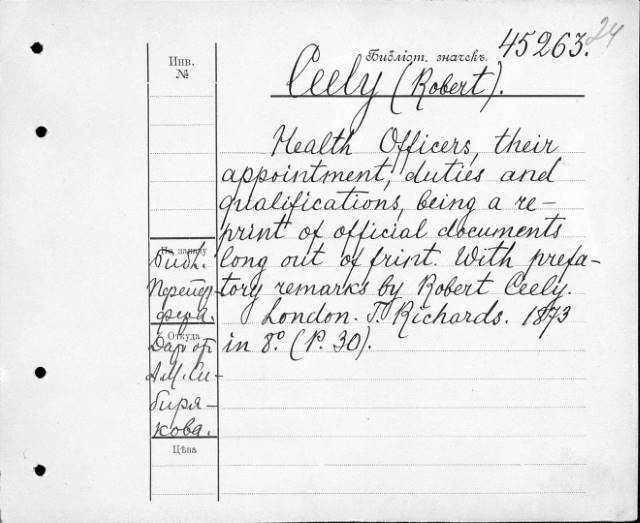 24
Библіот. значекъ. 45263.
Инв.
№
Ceely (Robert).
Health Officers, their
appointment, duties and
qualifications, being a re-
print of official documents
long out of frint. With prefa-
tory remarks by Robert Ceely.
London. T. Richards. 1873
in 8.º (P. 30).
По каталу
Библ.
Перетер-
фера.
Откуда
Дар от
А.М. Си-
биря-
кова.
Цѣна